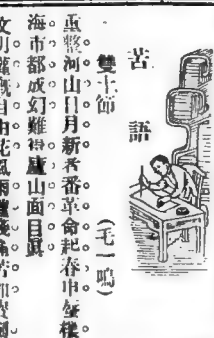 苦語
雙十節
(毛一鳴)
重整河山日月新番革命起春申蜃樓
海市都成幻難得廬山面目眞
文明灌漑自由花風雨摧殘痛苦